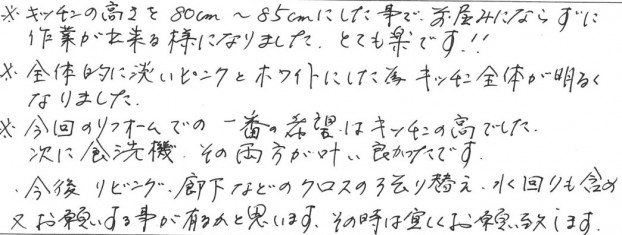 ※ キッチンの高さを 80cm 〜 85cmにした事で、前屈みにならずに
作業が出来る様になりました。とても楽です!!
※ 全体的に淡いピンクとホワイトにした為 キッチン全体が明るく
なりました。
※ 今回のリフォームでの 一番の希望はキッチンの高でした。
次に食洗機、その両方が叶い良かったです。
・今後 リビング、廊下などのクロスの張り替え、水回りも含め
又お願いする事が有るかと思います。その時は宜しくお願い致します。